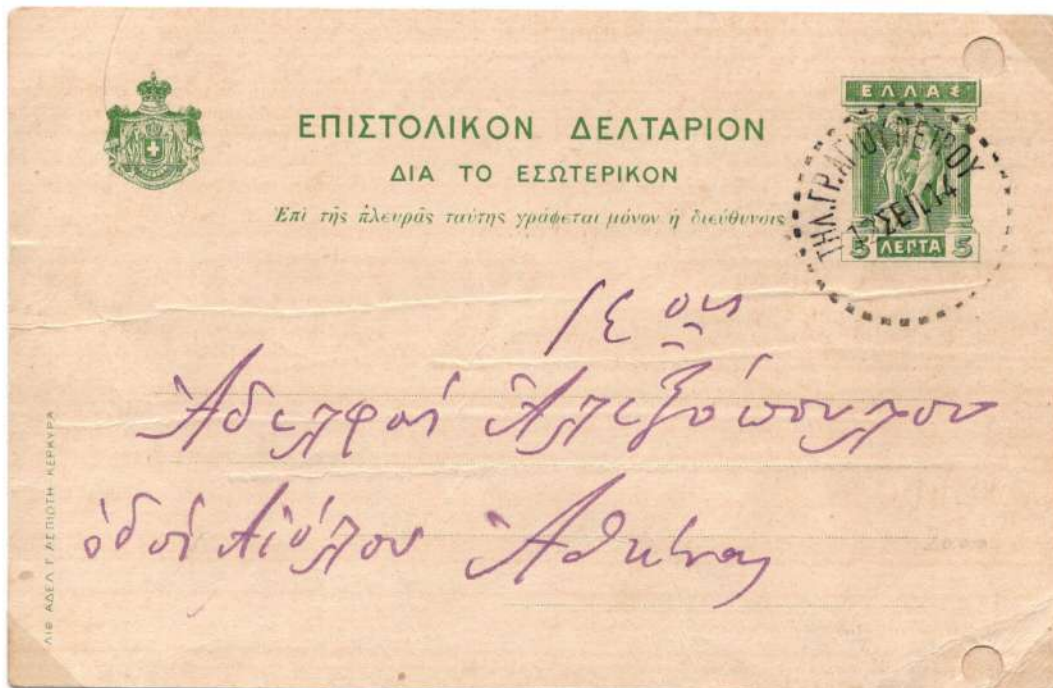 ΕΛΛΑΣ
ΕΠΙΣΤΟΛΙΚΟΝ ΔΕΛΤΑΡΙΟΝ
ΔΙΑ ΤΟ ΕΣΩΤΕΡΙΚΟΝ
Ἐπὶ τῆς πλευρᾶς ταύτης γράφεται μόνον ἡ διεύθυνσις
ΤΗΛ.ΓΡ.ΑΓΙΟΥ ΠΕΤΡΟΥ
ΣΕΠ.14
5 ΛΕΠΤΑ 5
Ἀδελφοὶ Ἀλεξόπουλου
ὁδὸς Αἰόλου Ἀθήνας
ΛΙΘ ΑΔΕΛ Γ ΑΣΠΙΩΤΗ ΚΕΡΚΥΡΑ